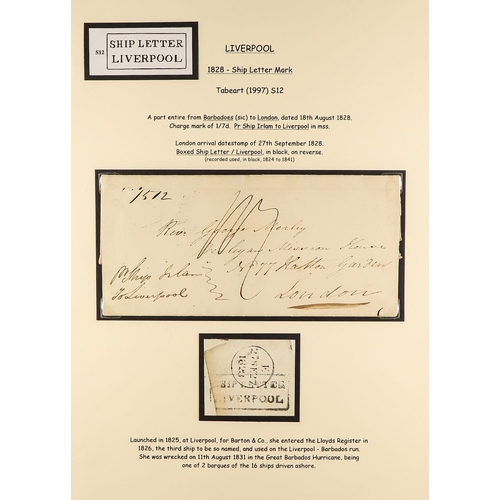 S12
SHIP LETTER
LIVERPOOL
LIVERPOOL
1828 - Ship Letter Mark
Tabeart (1997) S12
A part entire from Barbadoes (sic) to London, dated 18th August 1828.
Charge mark of 1/7d. Pr Ship Irlam to Liverpool in mss.
London arrival datestamp of 27th September 1828.
Boxed Ship Letter / Liverpool, in black, on reverse.
(recorded used, in black, 1824 to 1841)
Revd George Morley
Wesleyan Mission House
No 77 Hatton Garden
London
pr Ship Irlam
To Liverpool
27 SE 27
1828
SHIP LETTER
LIVERPOOL
Launched in 1825, at Liverpool, for Barton & Co., she entered the Lloyds Register in
1826, the third ship to be so named, and used on the Liverpool - Barbados run.
She was wrecked on 11th August 1831 in the Great Barbados Hurricane, being
one of 2 barques of the 16 ships driven ashore.